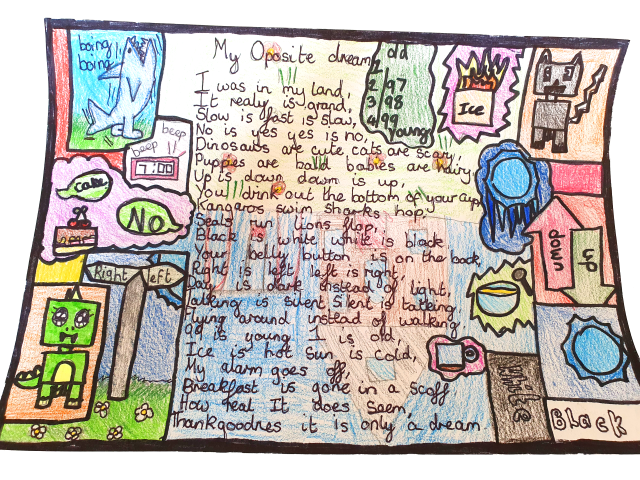 My Oposite dream
I was in my land,
It realy is grand,
Slow is fast is slaw,
No is yes yes is no,
Dinosaurs are cute cats are scary,
Puppies are bald babies are hairy
Up is down down is up,
You drink out the bottom of your cup,
Kangaros swim sharks hop,
Seals run lions flop,
Black is white white is black
Your belly button is on the back,
Right is left left is right,
Day is dark instead of light,
Talking is silent Silent is talking,
Flying around instead of walking,
99 is young 1 is old,
Ice is hot sun is cold,
My alarm goes off,
Breakfast is gone in a scoff
How real It does Saem,
Thankgoodnes it is only a dream
boing
boing
beep
beep
7:00
Cake
No
Right
left
old
2 97
3 98
4 99
young
Ice
down
up
White
Black